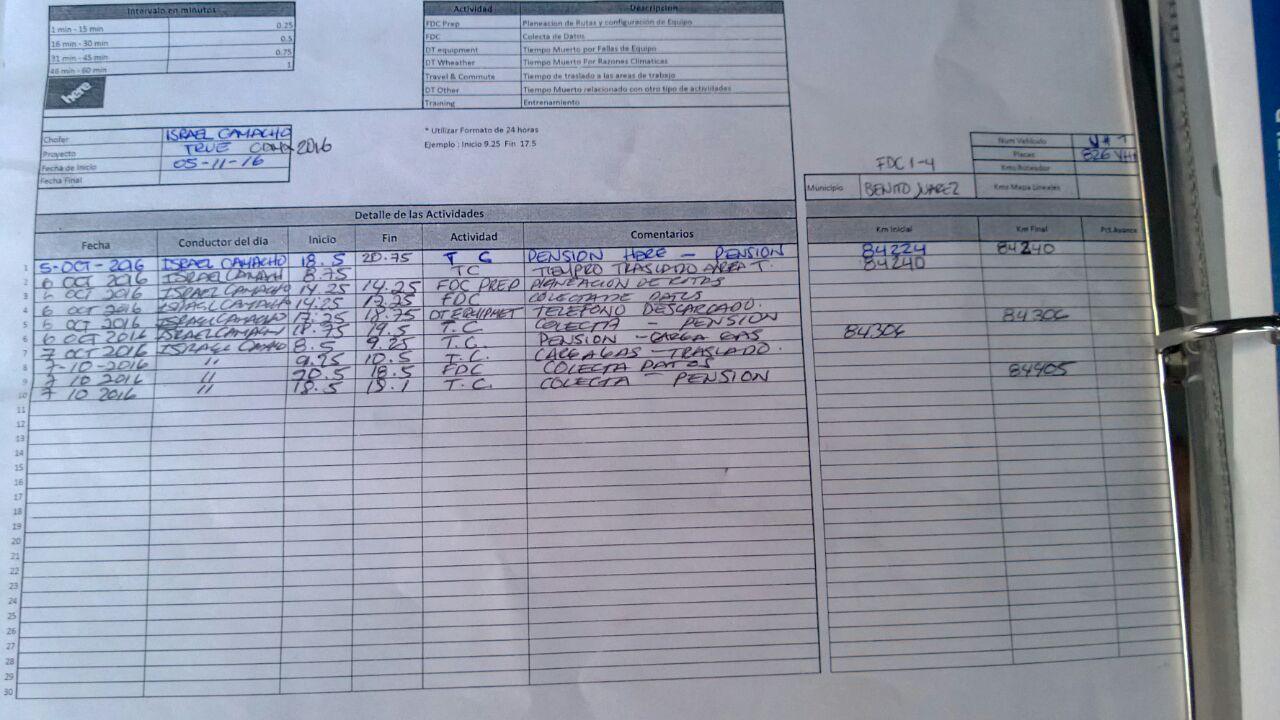 Intervalo en minutos
1 min - 15 min 0.25
16 min - 30 min 0.5
31 min - 45 min 0.75
46 min - 60 min 1
here
Actividad Descripcion
FDC Prep Planeacion de Rutas y configuración de Equipo
FDC Colecta de Datos
DT equipment Tiempo Muerto por Fallas de Equipo
DT Wheather Tiempo Muerto Por Razones Climaticas
Travel & Commute Tiempo de traslado a las areas de trabajo
DT Other Tiempo Muerto relacionado con otro tipo de actividades
Training Entrenamiento
* Utilizar Formato de 24 horas
Ejemplo : Inicio 9.25 Fin 17.5
Chofer ISRAEL CAMACHO
Proyecto TRUE CDMX 2016
Fecha de Inicio 05-11-16
Fecha Final
Num Vehiculo
Placas 826
Kms Ruteador
FDC 1-4
Municipio BENITO JUAREZ Kms Mapa Lineales
Detalle de las Actividades
Fecha Conductor del día Inicio Fin Actividad Comentarios Km Inicial Km Final Pct.Avance
1 5-OCT-2016 ISRAEL CAMACHO 18.5 20.75 T C PENSION HERE - PENSION 84224 84240
2 6 OCT 2016 ISRAEL CAMACH 8.75 TC TIEMPRO TRASLADO AREA T. 84240
3 6 OCT 2016 ISRAEL CAMACHO 14.25 14.25 FDC PREP PLANEACION DE RUTAS
4 6 OCT 2016 ISRAEL CAMACHO 14.25 17.25 FDC COLECTA DE DATOS
5 OCT 2016 ISRAEL CAMACHO 17.25 18.75 DT EQUIPMET TELEFONO DESCARGADO. 84306
6 6 OCT 2016 ISRAEL CAMACH 18.75 19.5 T.C. COLECTA - PENSION
7 7 OCT 2016 ISRAEL 8.5 9.25 T.C. PENSION - CARGA GAS 84306
8 7-10-2016 " 9.25 10.5 T.C. CARGA GAS - TRASLADO.
9 7 10 2016 " 18.5 FDC COLECTA DATOS 84405
10 7 10 2016 " 18.5 19.1 T.C. COLECTA - PENSION
11
12
13
14
15
16
17
18
19
20
21
22
23
24
25
26
27
28
29
30